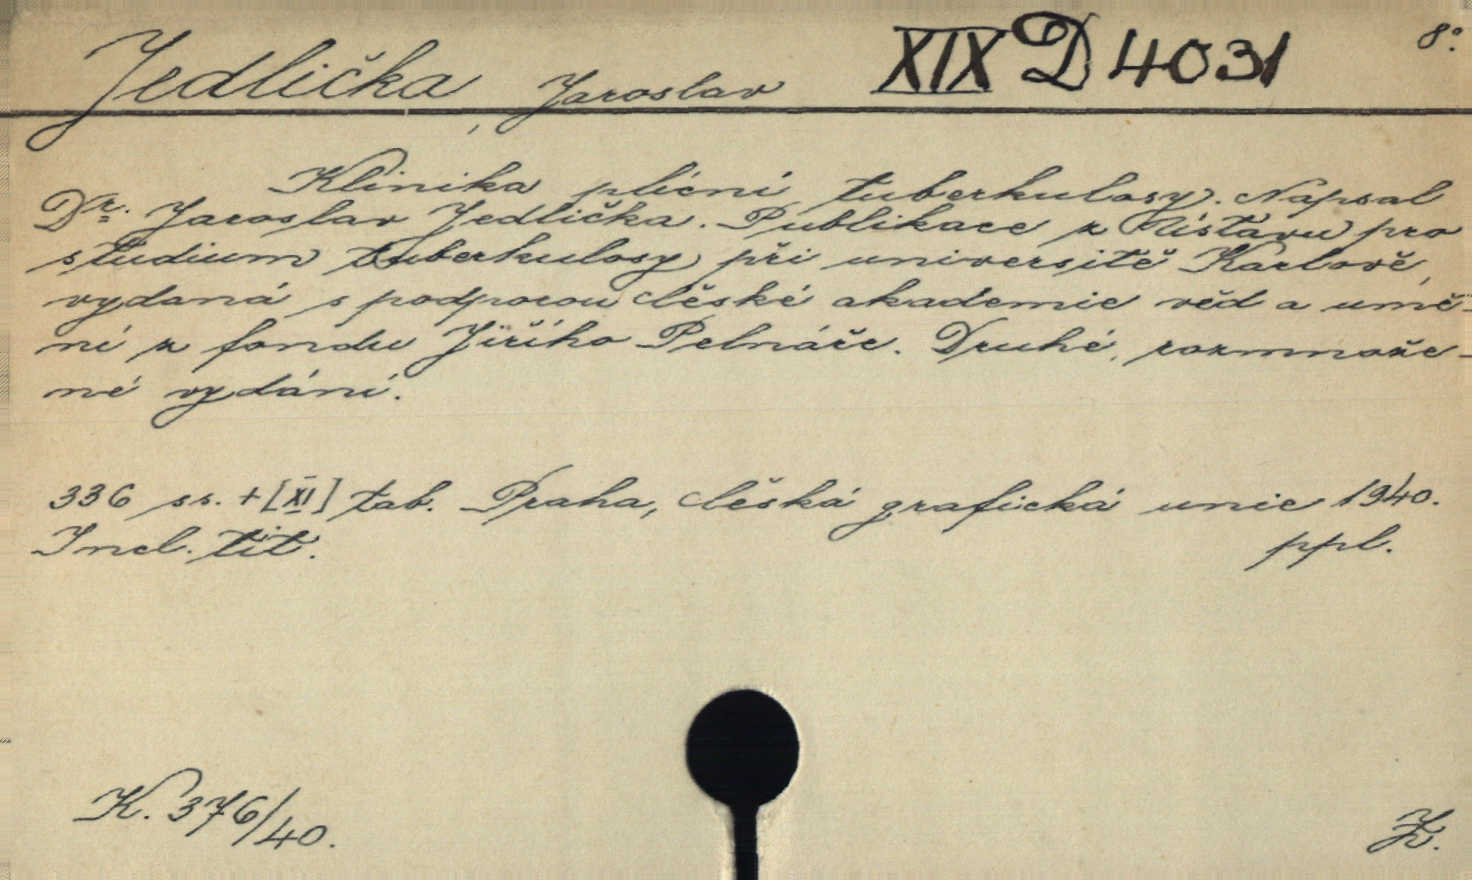 Jedlička, Jaroslav XIX D 4031 8°.
Klinika plicní tuberkulosy. Napsal
Dr. Jaroslav Jedlička. Publikace z Ústavu pro
studium tuberkulosy při universitě Karlově,
vydaná s podporou České akademie věd a umě-
ní z fondu Jiřího Pelnáře. Druhé, rozmnože-
né vydání.
336 ss. + [XI] tab. Praha, Česká grafická unie 1940.
Incl. tit. ppl.
K. 376/40.